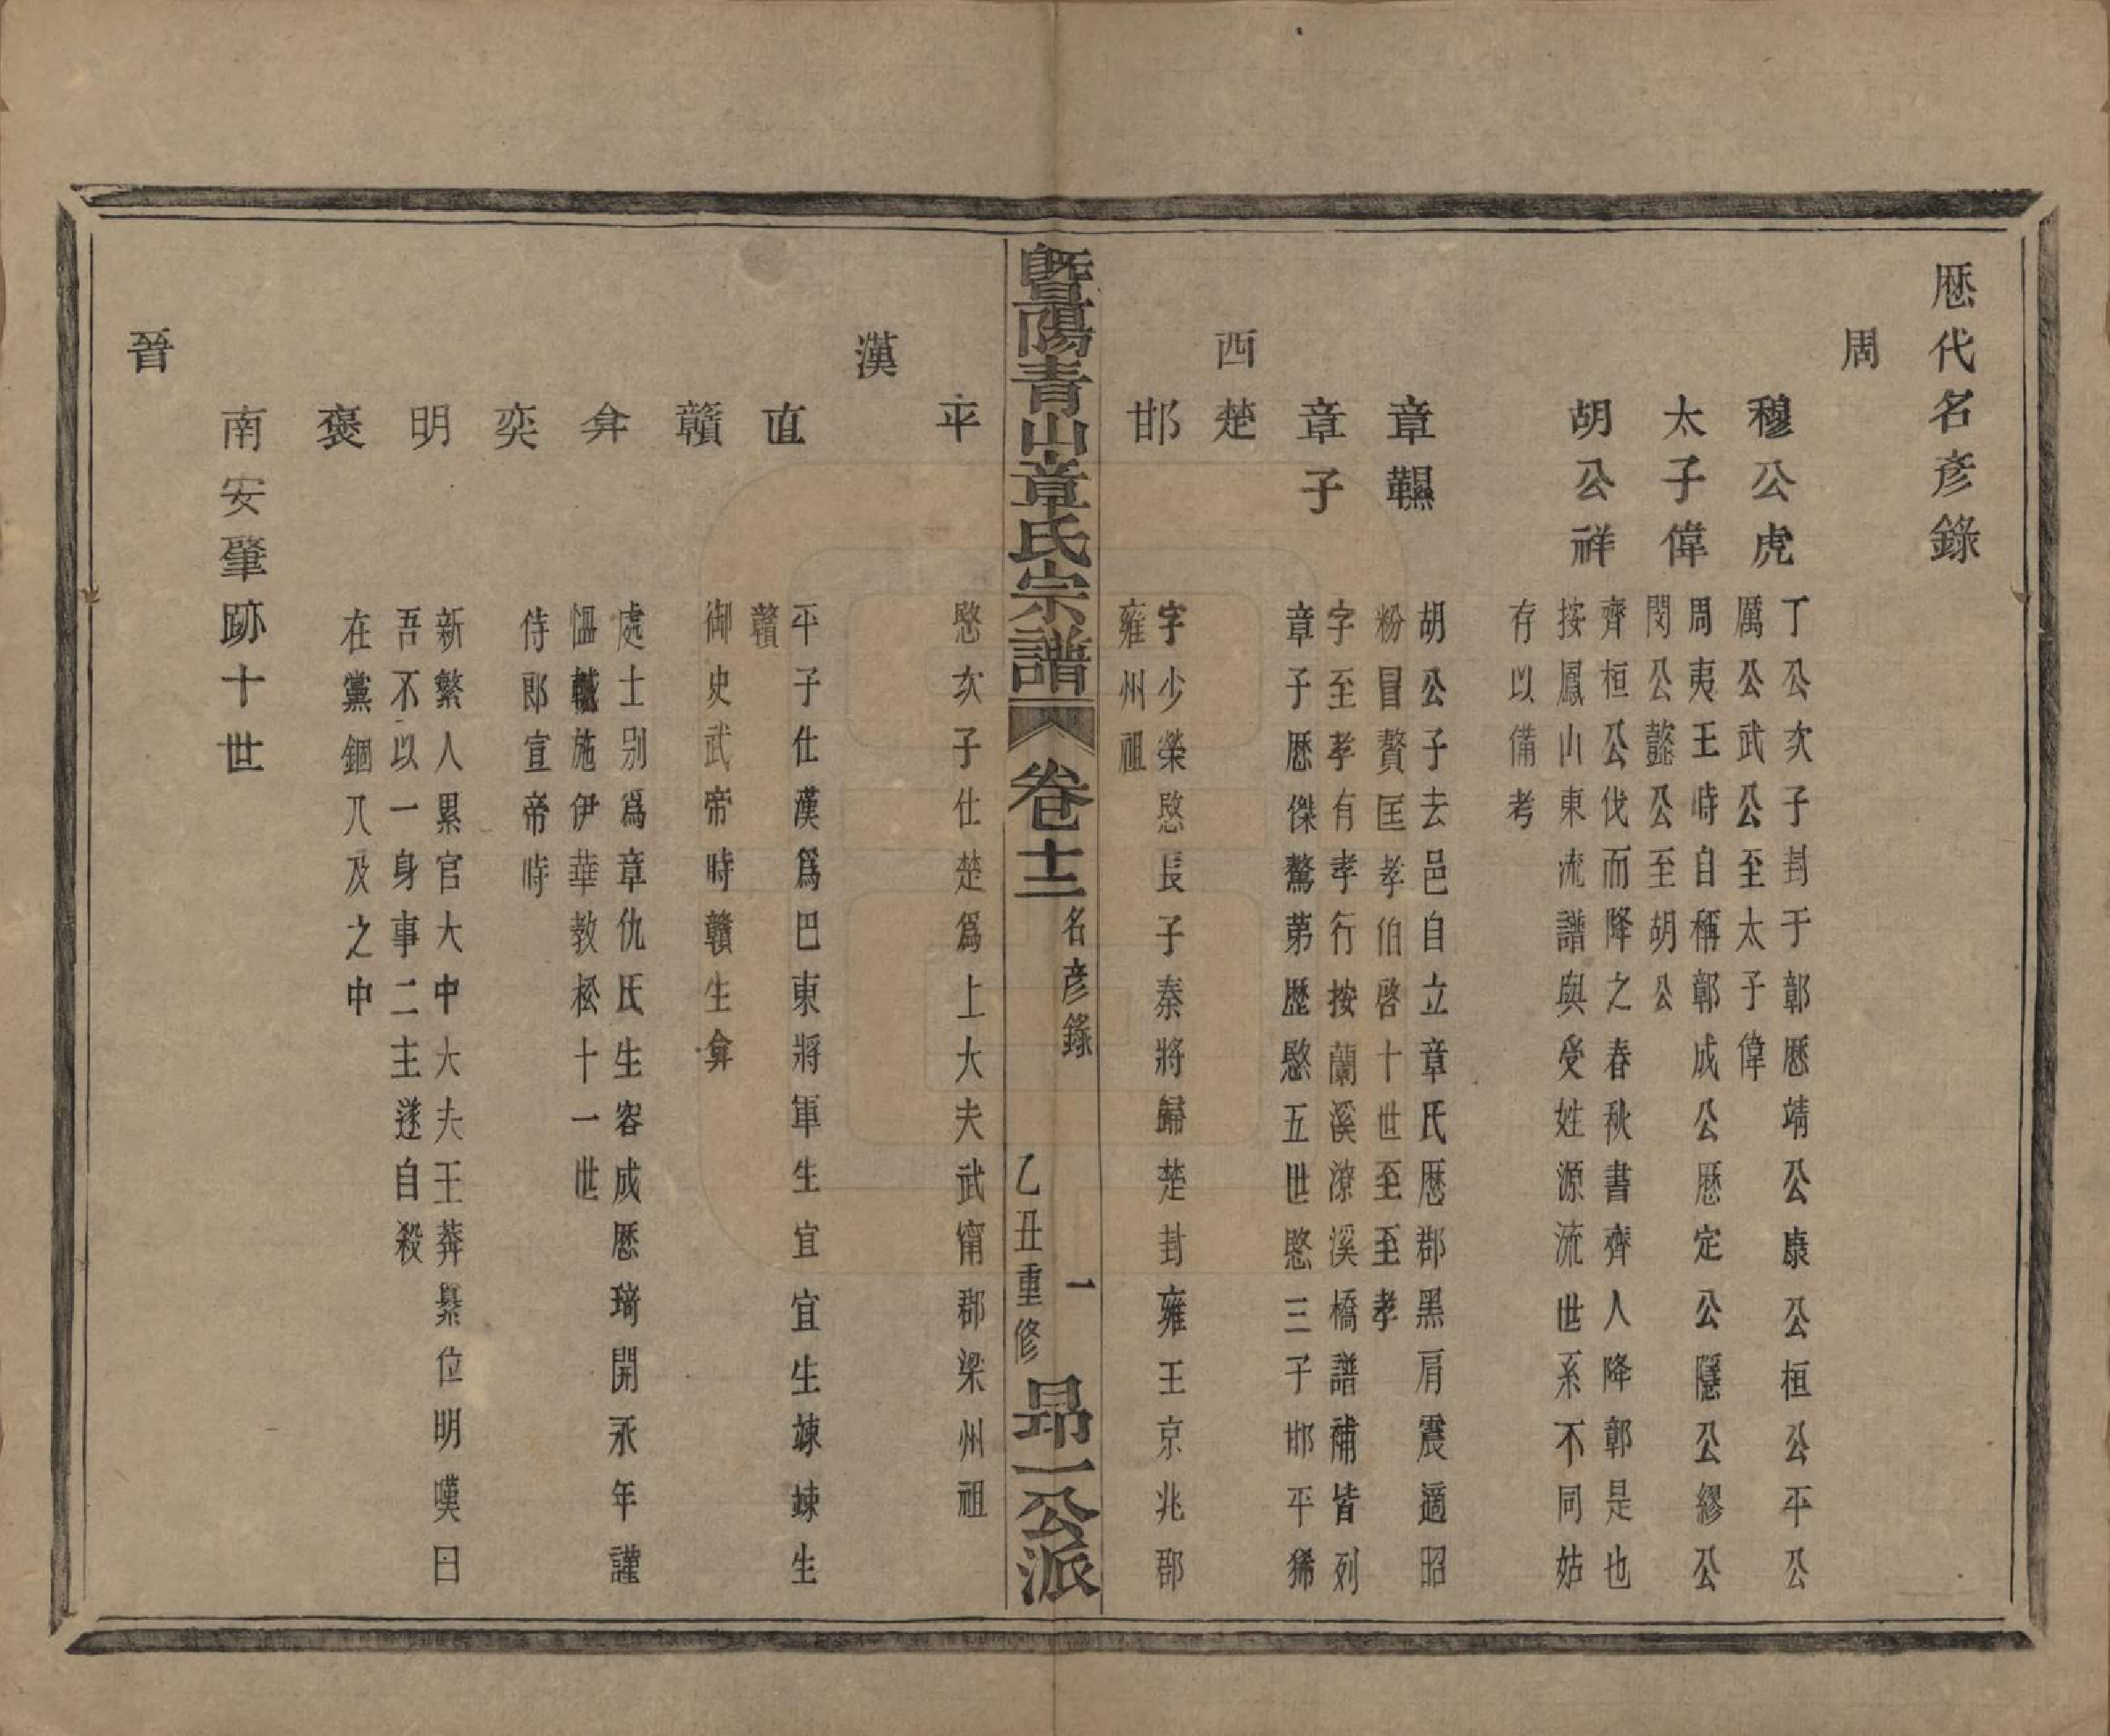 歷代名彥錄
周
穆公虎
丁公次子封于鄣歷靖公康公桓公平公
厲公武公至太子偉
太子偉
周夷王時自稱鄣成公歷定公隱公繆公
閔公懿公至胡公
胡公祥
齊桓公伐而降之春秋書齊人降鄣是也
按鳳山東流譜與受姓源流世系不同姑
存以備考
章韅
胡公子去邑自立章氏歷郡黑肩震適昭
粉冒贅匡孝伯啓十世至至孝
章子
字至孝有孝行按蘭溪潦溪橋譜補皆列
章子歷傑驁第歷愍五世愍三子邯平狶
西楚
邯
字少榮愍長子秦將歸楚封雍王京兆郡
雍州祖
暨陽青山章氏宗譜
卷十二
名彥錄
一
乙丑重修
昻一公派
平
愍次子仕楚為上大夫武甯郡梁州祖
漢
直
平子仕漢為巴東將軍生宜宜生竦竦生
贛
贛
御史武帝時贛生弇
弇
處士別為章仇氏生容成歷琦開永年謹
慍施伊華教松十一世
奕
侍郎宣帝時
明
新繁人累官大中大夫王莽纂位明嘆曰
吾不以一身事二主遂自殺
褒
在黨錮八及之中
南安肇跡十世
晉